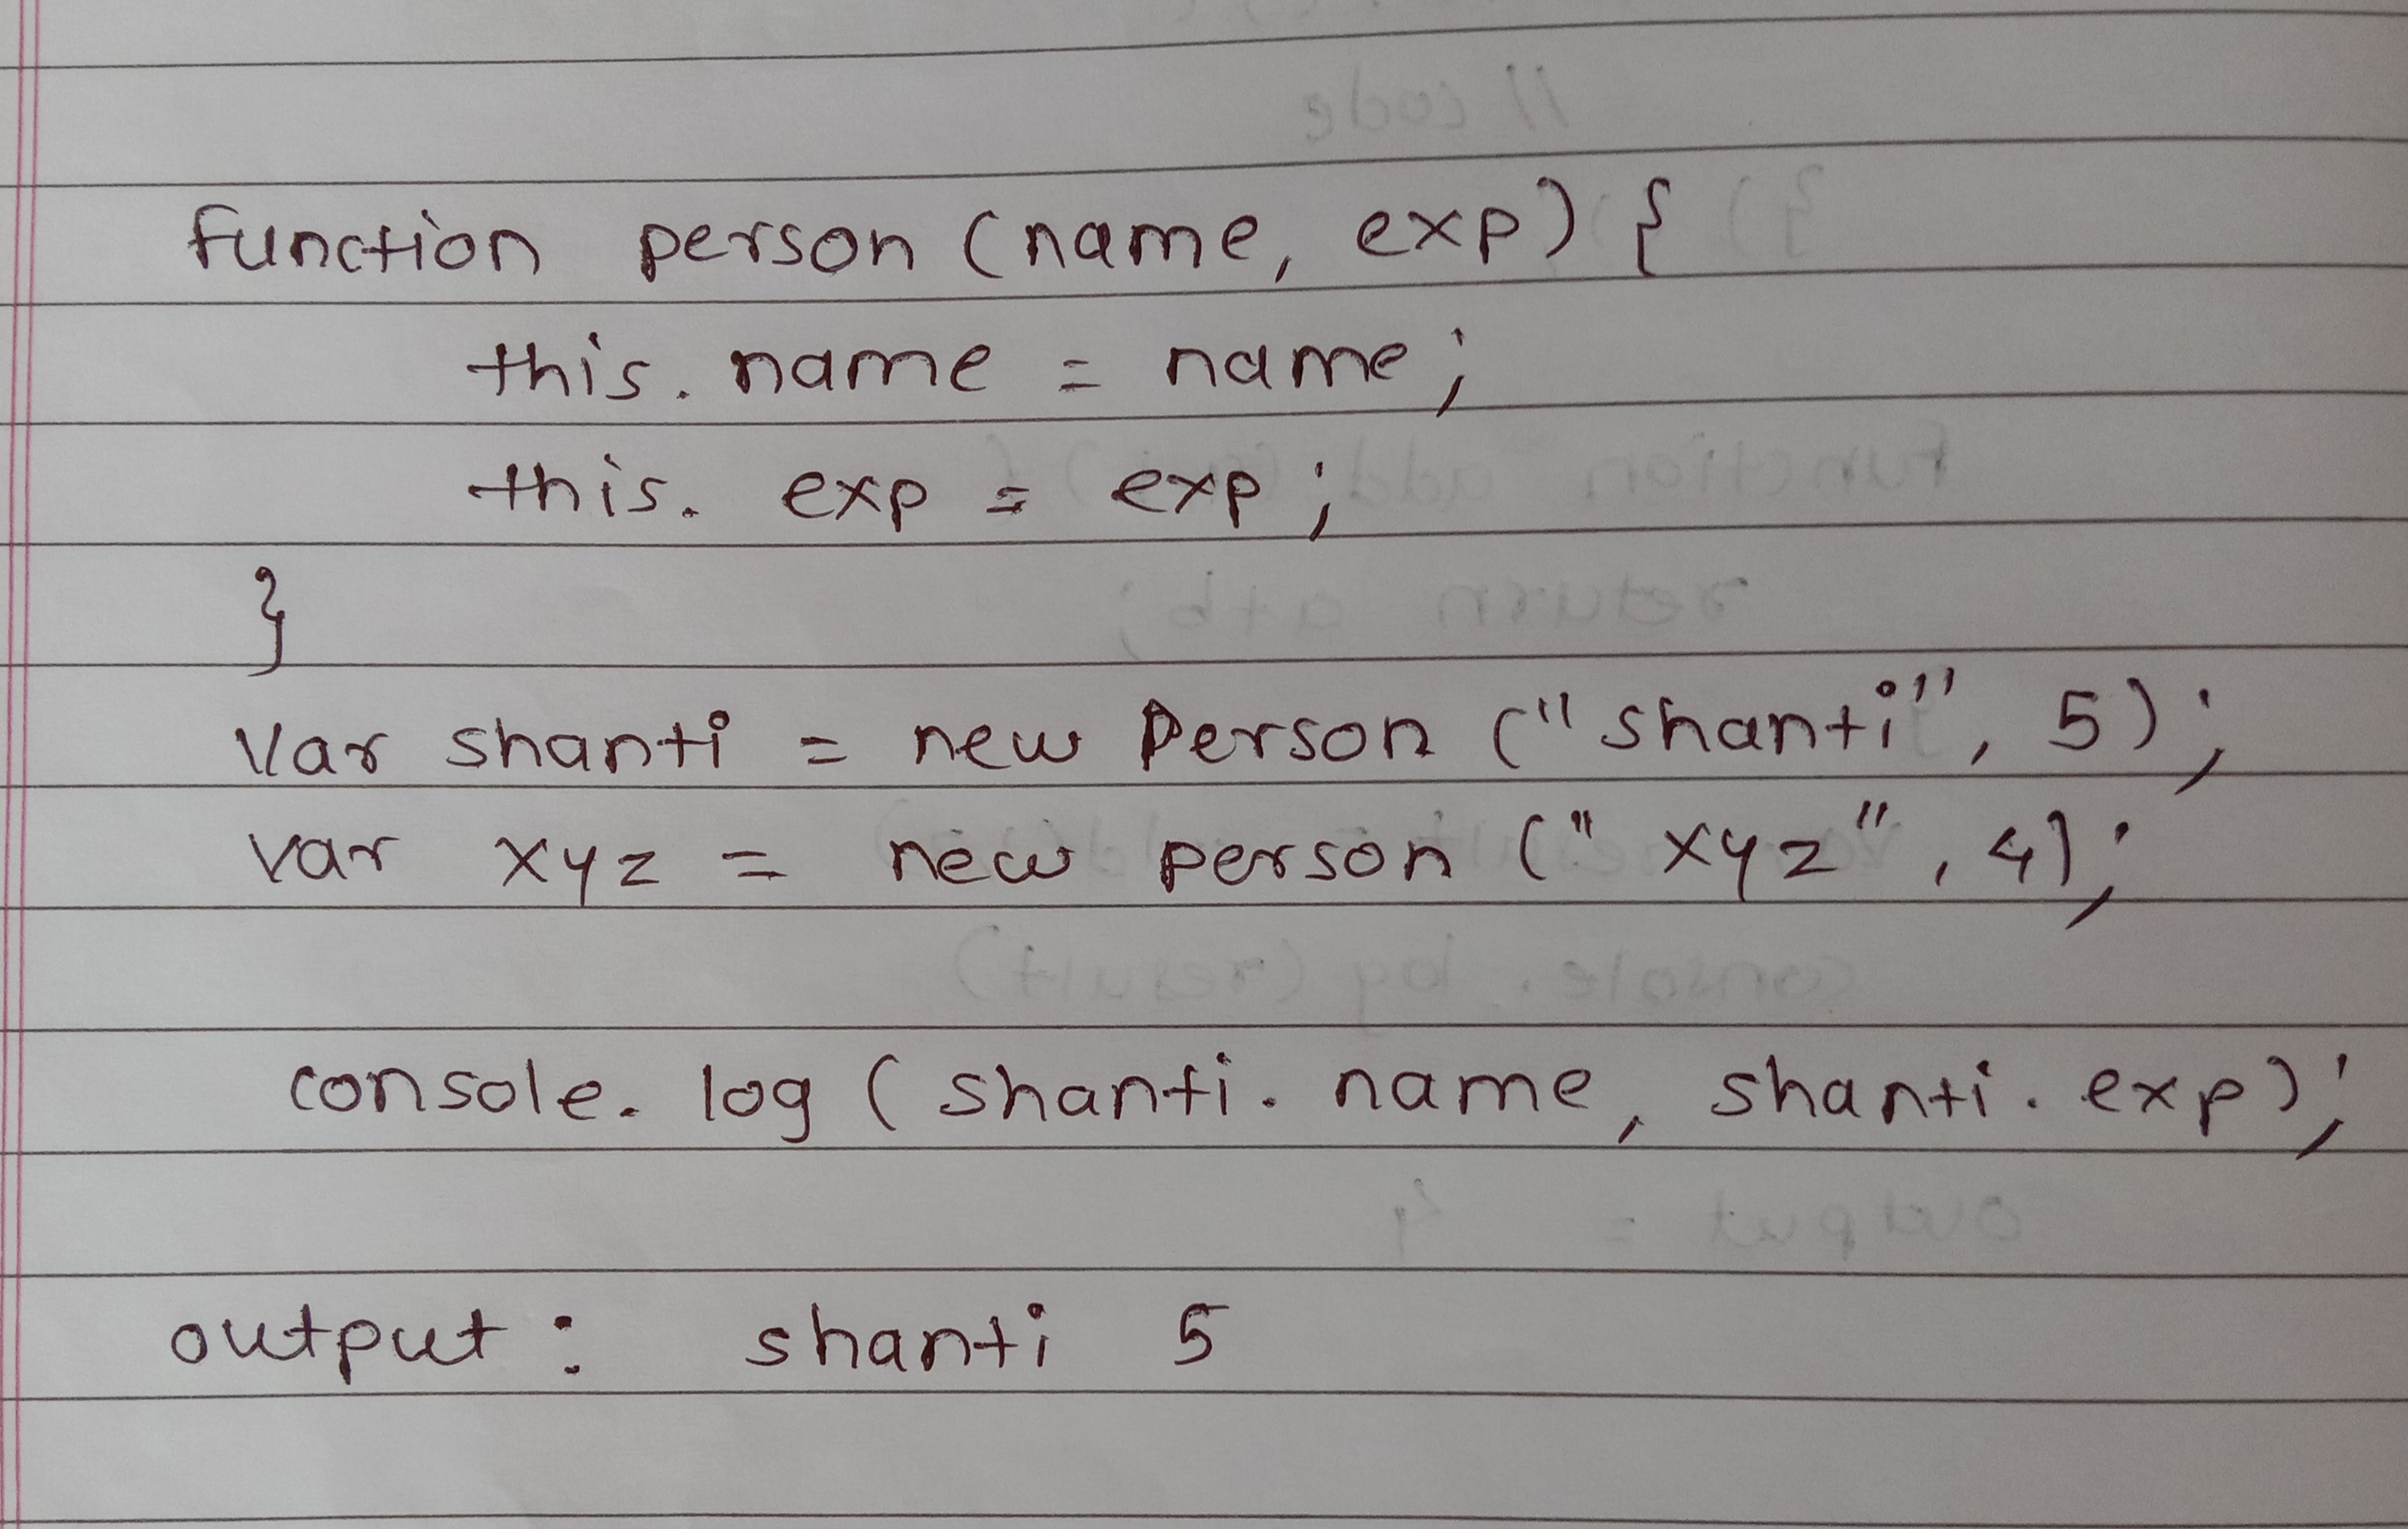 function person (name, exp) {
this. name = name;
this. exp = exp;
}
Var shanti = new Person ("shanti", 5);
var xyz = new person ("xyz", 4);
console. log (shanti. name, shanti. exp);
output : shanti 5